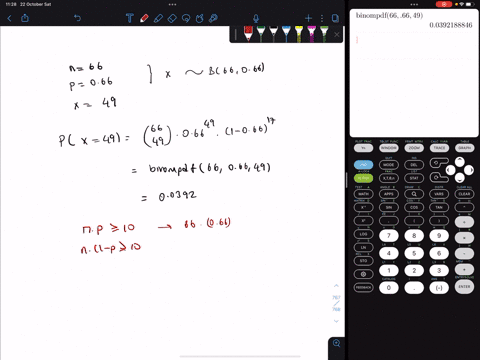 11:28 22 October Sat
binompdf(66,.66,49)
0.0392188846
n = 66
p = 0.66 } x ~ B(66, 0.66)
x = 49
P( x = 49) = (66 49) · 0.66^49 · (1-0.66)^17
= binompdf(66, 0.66, 49)
= 0.0392
n.p ≥ 10 → 66 · (0.66)
n.(1-p ≥ 10
WINDOW ZOOM TRACE GRAPH
MODE DEL
STAT
MATH APPS PRGM VARS CLEAR
SIN COS TAN
7 8 9
LOG 4 5 6
LN 1 2 3
STO 0 . (-)
767
768